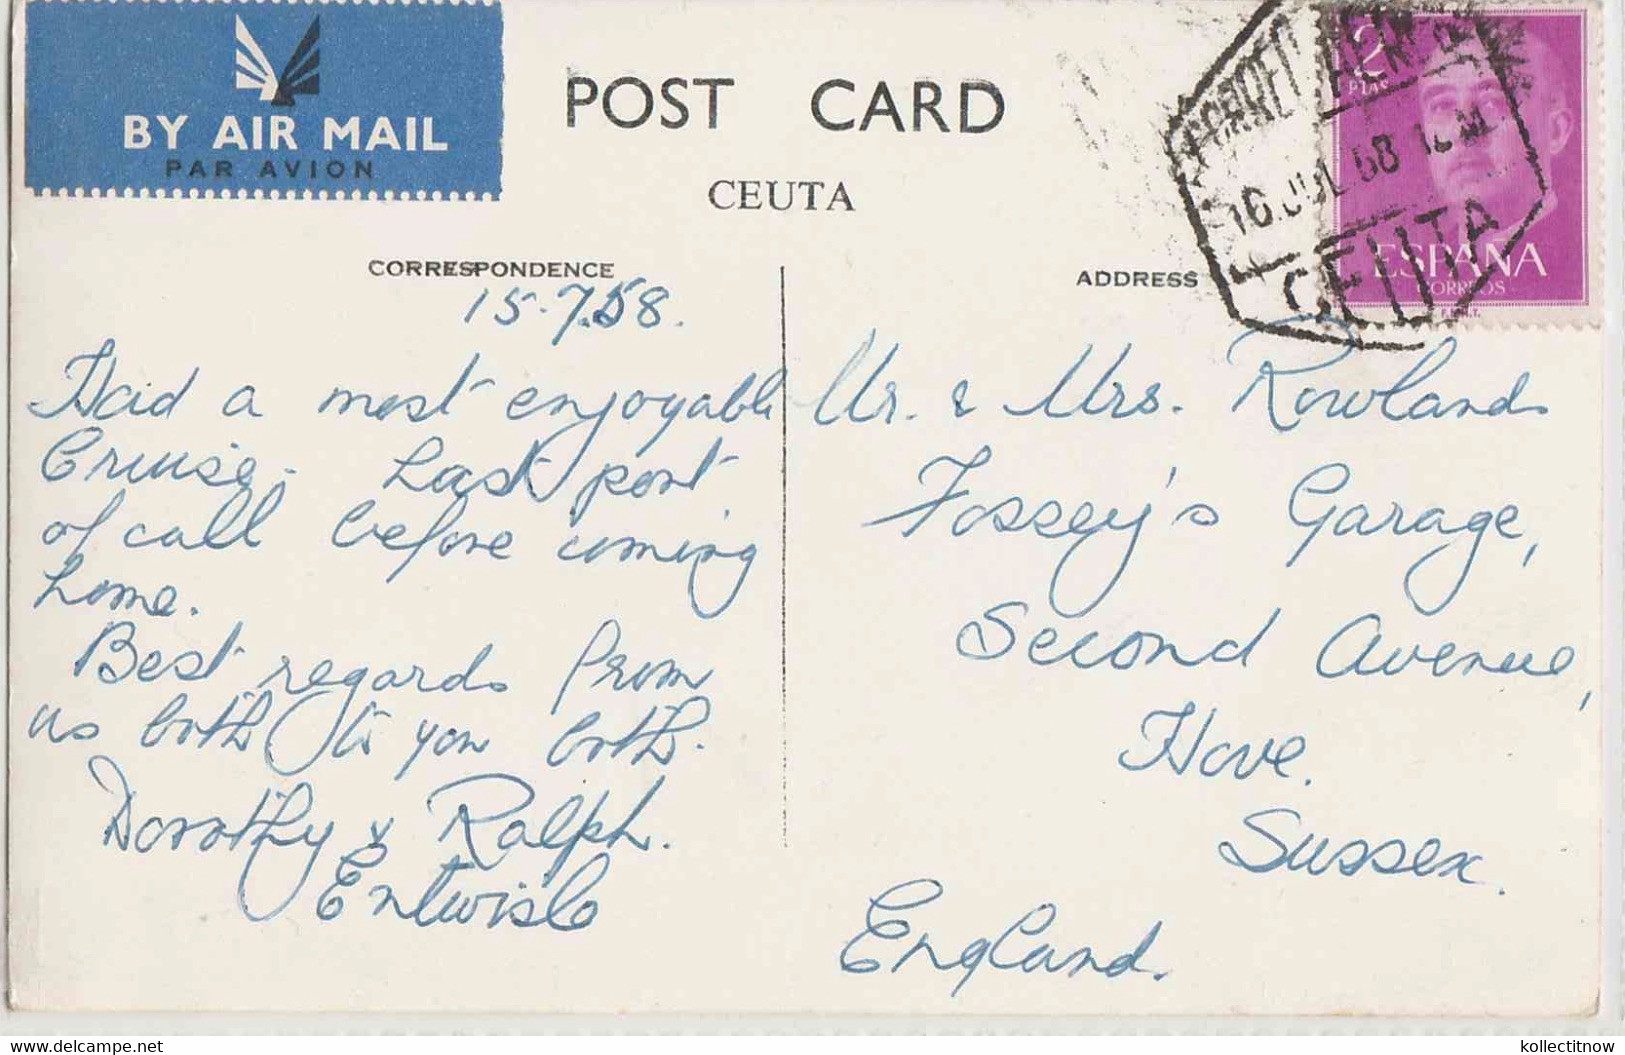 BY AIR MAIL
PAR AVION
POST CARD
CEUTA
CORRESPONDENCE
15.7.58.
Had a most enjoyable
Cruise. Last port
of call before coming
home.
Best regards from
us both to you both.
Dorothy & Ralph.
Entwisle
ADDRESS
Mr. & Mrs. Rowlands
Fossey's Garage,
Second Avenue,
Hove.
Sussex.
England.
2
PTAS
ESPAÑA
CORREOS
F.N.M.T.
CORREO AEREO
16 JUL 58
CEUTA
www.delcampe.net
kollectitnow